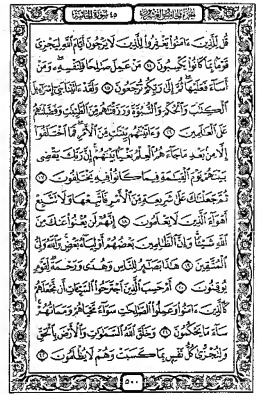 الجزء الخامس والعشرون ٤٥ سورة الجاثية
قُل لِّلَّذِينَ ءَامَنُوا۟ يَغْفِرُوا۟ لِلَّذِينَ لَا يَرْجُونَ أَيَّامَ ٱللَّهِ لِيَجْزِىَ
قَوْمًۢا بِمَا كَانُوا۟ يَكْسِبُونَ ١٤ مَنْ عَمِلَ صَٰلِحًا فَلِنَفْسِهِۦ وَمَنْ
أَسَآءَ فَعَلَيْهَا ثُمَّ إِلَىٰ رَبِّكُمْ تُرْجَعُونَ ١٥ وَلَقَدْ ءَاتَيْنَا بَنِىٓ إِسْرَٰٓءِيلَ
ٱلْكِتَٰبَ وَٱلْحُكْمَ وَٱلنُّبُوَّةَ وَرَزَقْنَٰهُم مِّنَ ٱلطَّيِّبَٰتِ وَفَضَّلْنَٰهُمْ
عَلَى ٱلْعَٰلَمِينَ ١٦ وَءَاتَيْنَٰهُم بَيِّنَٰتٍ مِّنَ ٱلْأَمْرِ فَمَا ٱخْتَلَفُوٓا۟
إِلَّا مِنۢ بَعْدِ مَا جَآءَهُمُ ٱلْعِلْمُ بَغْيًۢا بَيْنَهُمْ إِنَّ رَبَّكَ يَقْضِى
بَيْنَهُمْ يَوْمَ ٱلْقِيَٰمَةِ فِيمَا كَانُوا۟ فِيهِ يَخْتَلِفُونَ ١٧
ثُمَّ جَعَلْنَٰكَ عَلَىٰ شَرِيعَةٍ مِّنَ ٱلْأَمْرِ فَٱتَّبِعْهَا وَلَا تَتَّبِعْ
أَهْوَآءَ ٱلَّذِينَ لَا يَعْلَمُونَ ١٨ إِنَّهُمْ لَن يُغْنُوا۟ عَنكَ مِنَ
ٱللَّهِ شَيْـًٔا وَإِنَّ ٱلظَّٰلِمِينَ بَعْضُهُمْ أَوْلِيَآءُ بَعْضٍ وَٱللَّهُ وَلِىُّ
ٱلْمُتَّقِينَ ١٩ هَٰذَا بَصَٰٓئِرُ لِلنَّاسِ وَهُدًى وَرَحْمَةٌ لِّقَوْمٍ
يُوقِنُونَ ٢٠ أَمْ حَسِبَ ٱلَّذِينَ ٱجْتَرَحُوا۟ ٱلسَّيِّـَٔاتِ أَن نَّجْعَلَهُمْ
كَٱلَّذِينَ ءَامَنُوا۟ وَعَمِلُوا۟ ٱلصَّٰلِحَٰتِ سَوَآءً مَّحْيَاهُمْ وَمَمَاتُهُمْ
سَآءَ مَا يَحْكُمُونَ ٢١ وَخَلَقَ ٱللَّهُ ٱلسَّمَٰوَٰتِ وَٱلْأَرْضَ بِٱلْحَقِّ
وَلِتُجْزَىٰ كُلُّ نَفْسٍۭ بِمَا كَسَبَتْ وَهُمْ لَا يُظْلَمُونَ ٢٢
٥٠٠